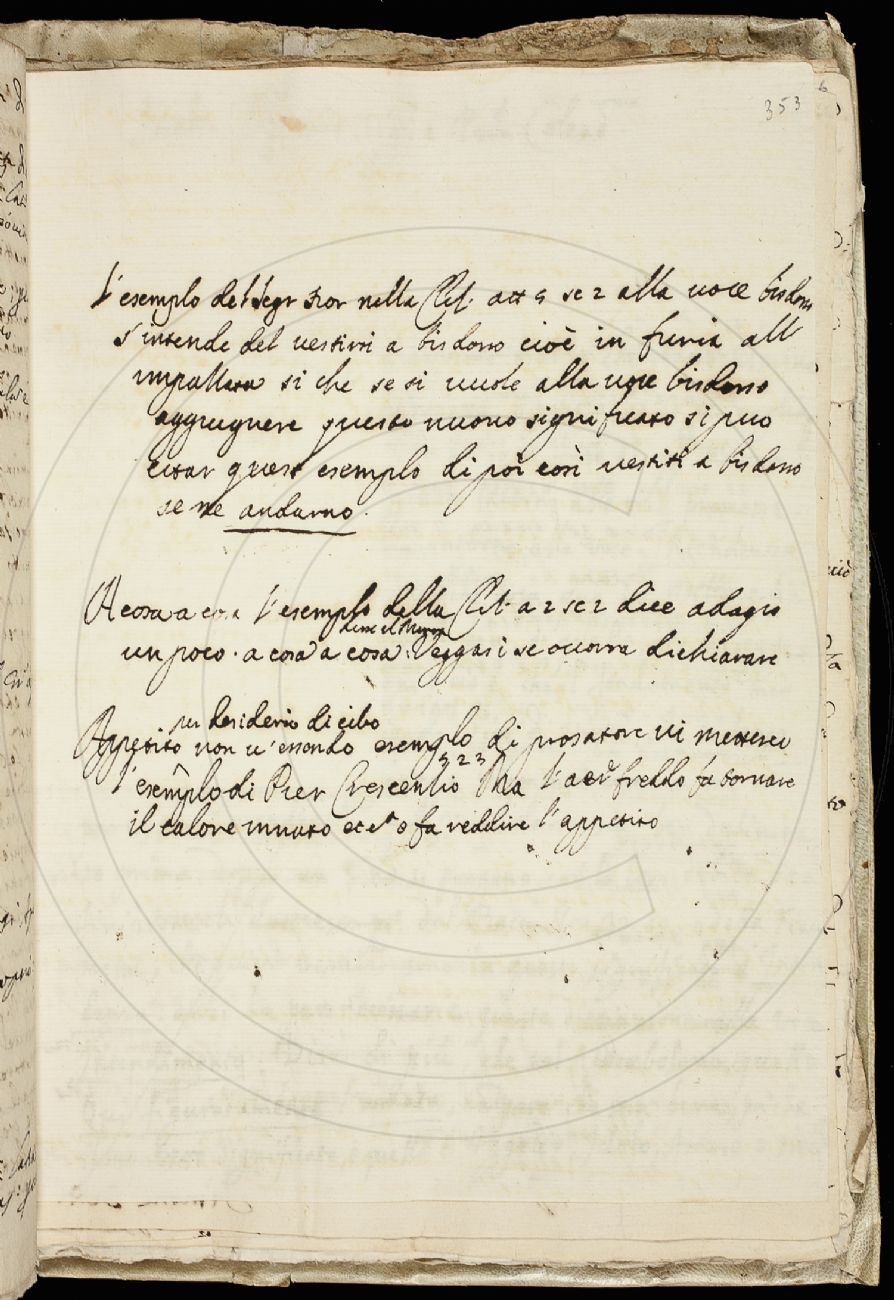 353
L'esempio del Segr Fior nella Clit. att 5 sc 2 alla uoce bisdoss
s'intende del uestirsi a bisdosso cioè in furia all
impazzata si che se si uuole alla uoce bisdosso
aggiugnere questo nuouo significato si puo
citar quest esempio di poi così uestiti a bisdosso
se ne andarno.
A cosa a cosa l'esempio della Clit. a 2 sc 2 dice adagio
un poco. a cosa a cosa. Veggasi se occorra dichiarare
per desiderio di cibo
Appetito non u'essendo esempio di prosatore ui metterei
323
l'esempio di Pier Crescentio Ma l'aer freddo fa tornare
il calore innato et etº fa reddire l'appetito